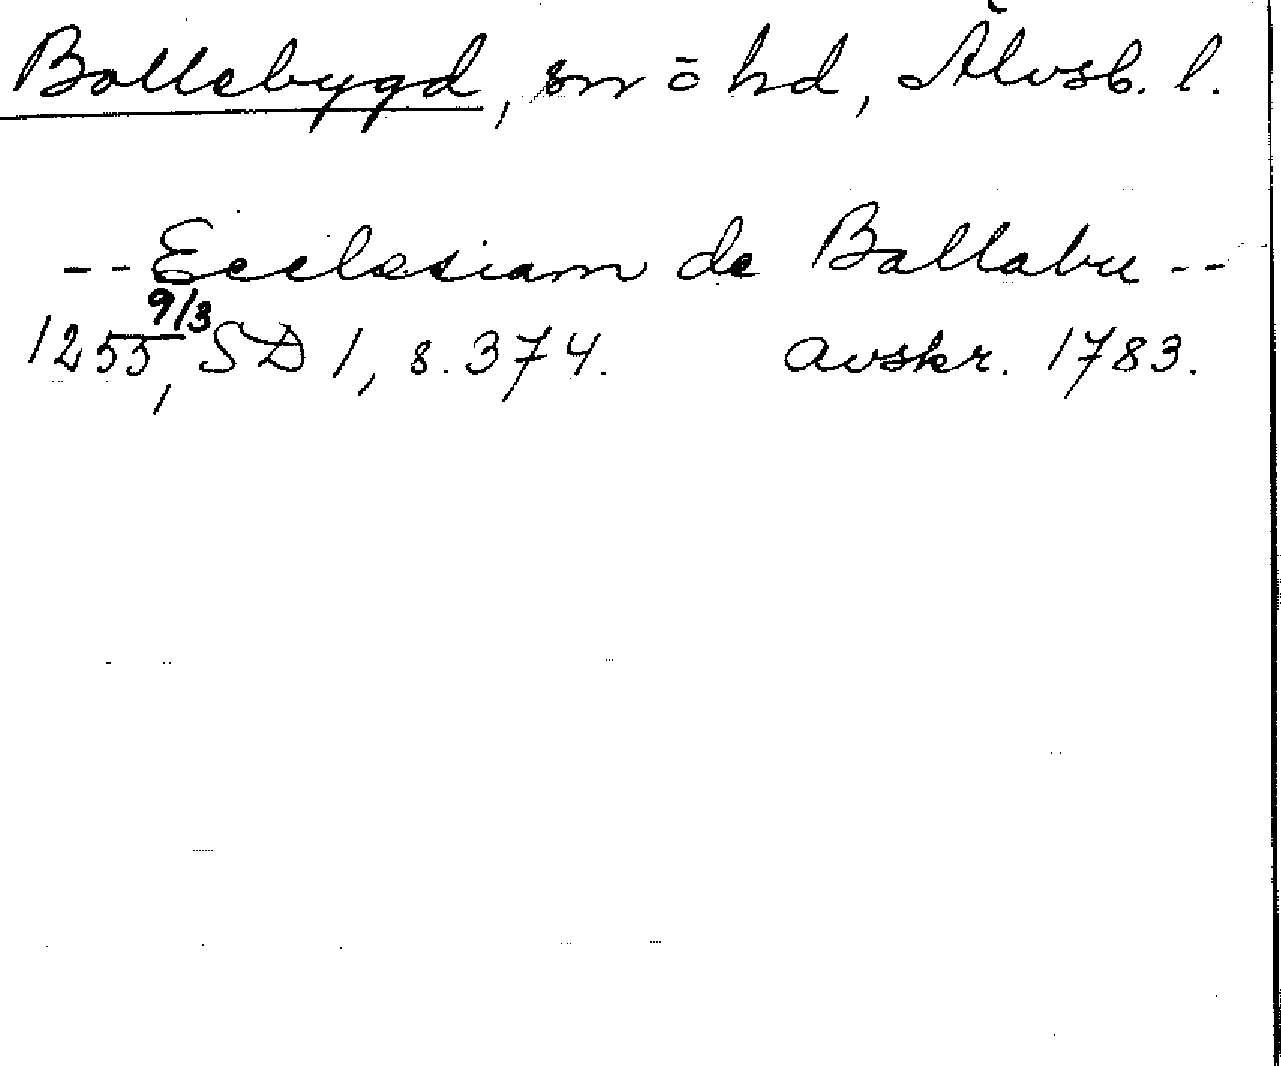 Bollebygd, sn o hd, Älvsb. l.
-- Ecclesiam de Ballabu --
1255 9/3, SD 1, s. 374. avskr. 1783.